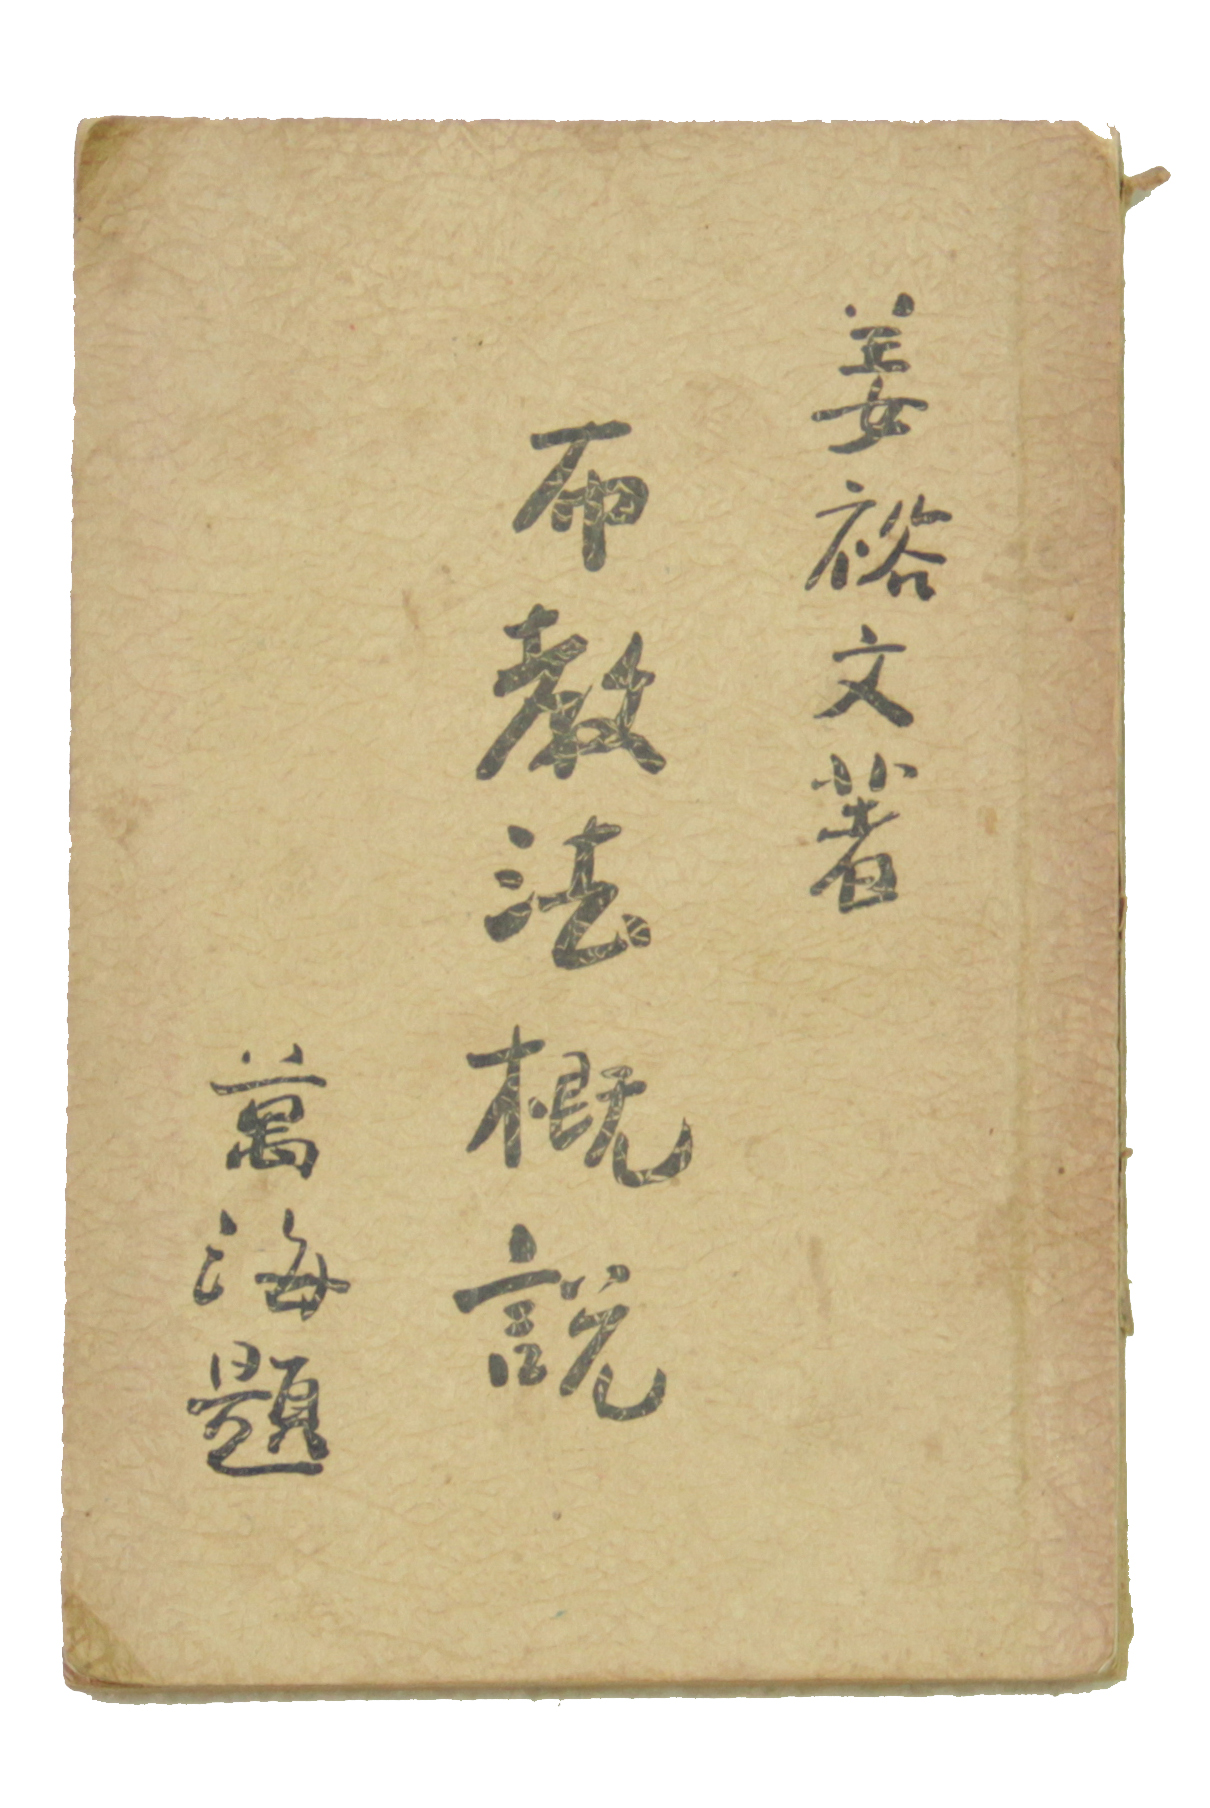 姜裕文著
布教法概説
萬海題